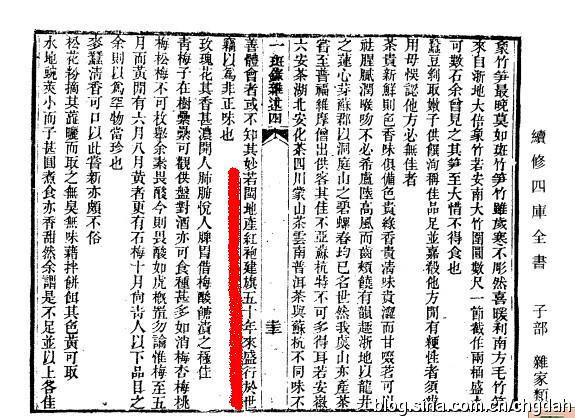 續修四庫全書 子部 雜家類
象竹筍最晚莫如斑竹筍竹雖歲寒不彫然喜暖利南方毛竹筍
來自浙地大倍象竹若安南大竹圍圓數尺一節截作兩桶盛
可數石余曾見之其筍至大情不得食也
蠶豆剝取嫩子供饌洵稱佳品足並嘉穀他方閒有粳性者須帶
用毋悞認他方必無佳者
茶貴新鮮則色香味俱備色貴綠香貴清味貴濇而甘可
祛腥膩潤喉吻不必希盧陸高風而齒頰饒有韻趣浙地以龍井
之蓮心芽蘇郡以洞庭山之碧螺春均已名世然我虞山亦產茶
嘗至普福維摩僧出供客其佳不亞蘇杭特不可多得耳若安徽
六安茶湖北安化茶四川蒙山茶雲南普洱茶與蘇杭不同味不
一斑錄雜述四
善體會者或不知其妙若閩地產紅袍建旗五十年來盛行於世
竊以為非正味也
玫瑰花其香甚濃開人肺腑悅人脾胃借梅酸餹漬之極佳
青梅子在樹纍纍可觀供盤對酒亦可食種甚多如消梅杏梅桃
梅松梅不可枚舉余素畏酸今則畏酸如虎概置勿論惟梅至五
月而黃間有六月八月黃者更有石梅十月尚青人以下品目之
余則以為罕物當珍也
麥蠶清香可口以此嘗新亦頗不俗
松花粉摘其蕊曬而取之無臭無味藉拌餅餌其色黃可取
水地豌莢小而子甚圓煮食亦香甜然余謂是不足並以上各佳
blog.sina.com.cn/chgdan